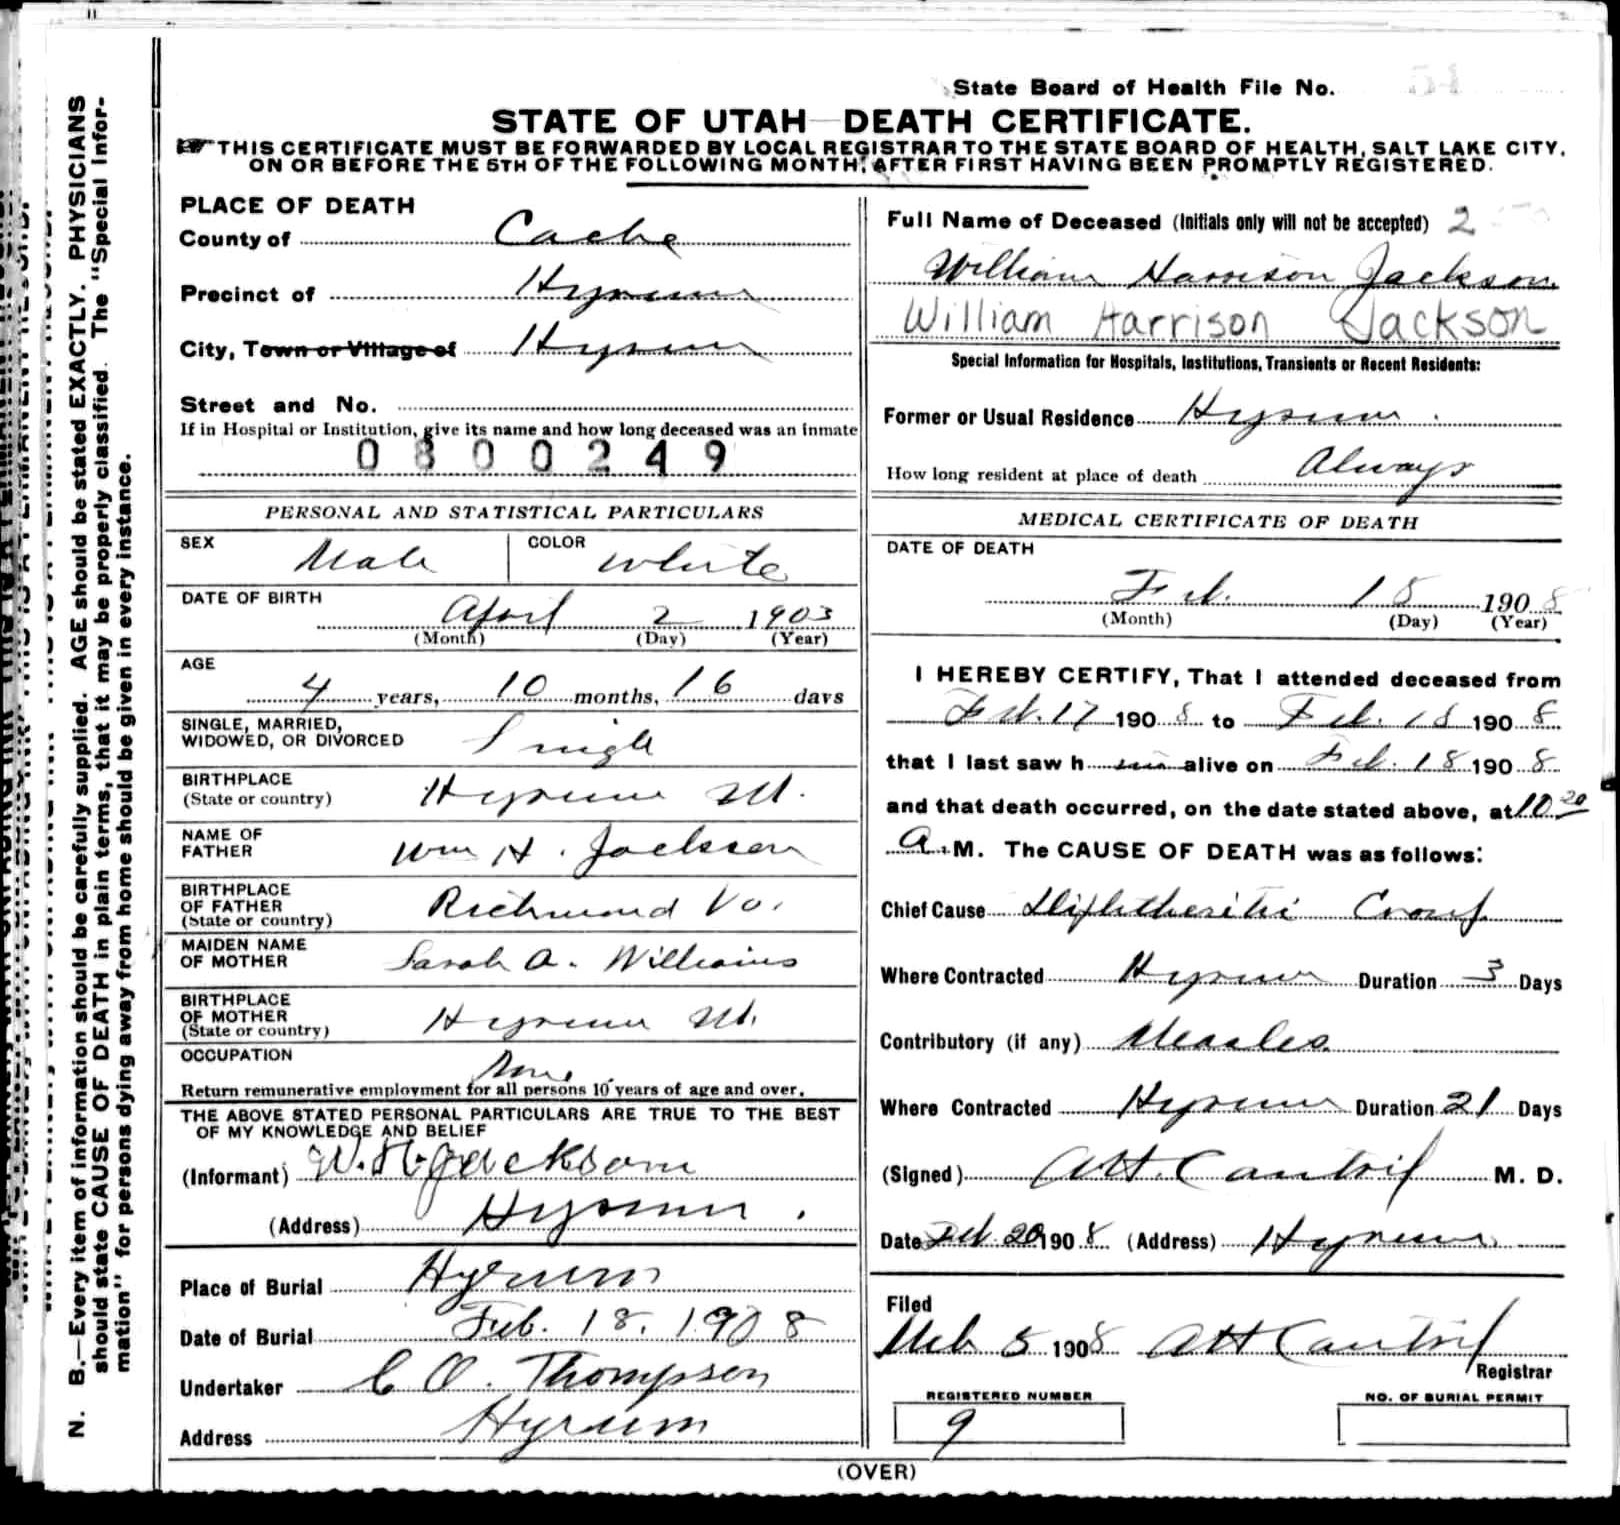 State Board of Health File No.
STATE OF UTAH—DEATH CERTIFICATE.
THIS CERTIFICATE MUST BE FORWARDED BY LOCAL REGISTRAR TO THE STATE BOARD OF HEALTH, SALT LAKE CITY,
ON OR BEFORE THE 5TH OF THE FOLLOWING MONTH, AFTER FIRST HAVING BEEN PROMPTLY REGISTERED.
N. B.—Every item of information should be carefully supplied. AGE should be stated EXACTLY. PHYSICIANS
should state CAUSE OF DEATH in plain terms, that it may be properly classified. The "Special Infor-
mation" for persons dying away from home should be given in every instance.
PLACE OF DEATH
County of Cache
Precinct of Hyrum
City, Town or Village of Hyrum
Street and No.
If in Hospital or Institution, give its name and how long deceased was an inmate
0800249
PERSONAL AND STATISTICAL PARTICULARS
SEX Male COLOR White
DATE OF BIRTH
April 2 1903
(Month) (Day) (Year)
AGE
4 years, 10 months, 16 days
SINGLE, MARRIED,
WIDOWED, OR DIVORCED Single
BIRTHPLACE
(State or country) Hyrum Ut.
NAME OF
FATHER Wm H. Jackson
BIRTHPLACE
OF FATHER
(State or country) Richmond Va.
MAIDEN NAME
OF MOTHER Sarah A. Williams
BIRTHPLACE
OF MOTHER
(State or country) Hyrum Ut.
OCCUPATION None
Return remunerative employment for all persons 10 years of age and over.
THE ABOVE STATED PERSONAL PARTICULARS ARE TRUE TO THE BEST
OF MY KNOWLEDGE AND BELIEF
(Informant) W. H. Jackson
(Address) Hyrum.
Place of Burial Hyrum
Date of Burial Feb. 18. 1908
Undertaker C O. Thompson
Address Hyrum
Full Name of Deceased (Initials only will not be accepted) 2
William Harrison Jackson
William Harrison Jackson
Special Information for Hospitals, Institutions, Transients or Recent Residents:
Former or Usual Residence Hyrum.
How long resident at place of death Always
MEDICAL CERTIFICATE OF DEATH
DATE OF DEATH
Feb. 18 1908
(Month) (Day) (Year)
I HEREBY CERTIFY, That I attended deceased from
Feb. 17 1908 to Feb. 18 1908
that I last saw him alive on Feb. 18 1908
and that death occurred, on the date stated above, at 10 20
A. M. The CAUSE OF DEATH was as follows:
Chief Cause Diphtheritic Croup
Where Contracted Hyrum Duration 3 Days
Contributory (if any) Measles
Where Contracted Hyrum Duration 21 Days
(Signed) A H. Cantril M. D.
Date Feb. 20 1908 (Address) Hyrum
Filed
Mch 5 1908 A H Cantril
Registrar
REGISTERED NUMBER
9
NO. OF BURIAL PERMIT
(OVER)